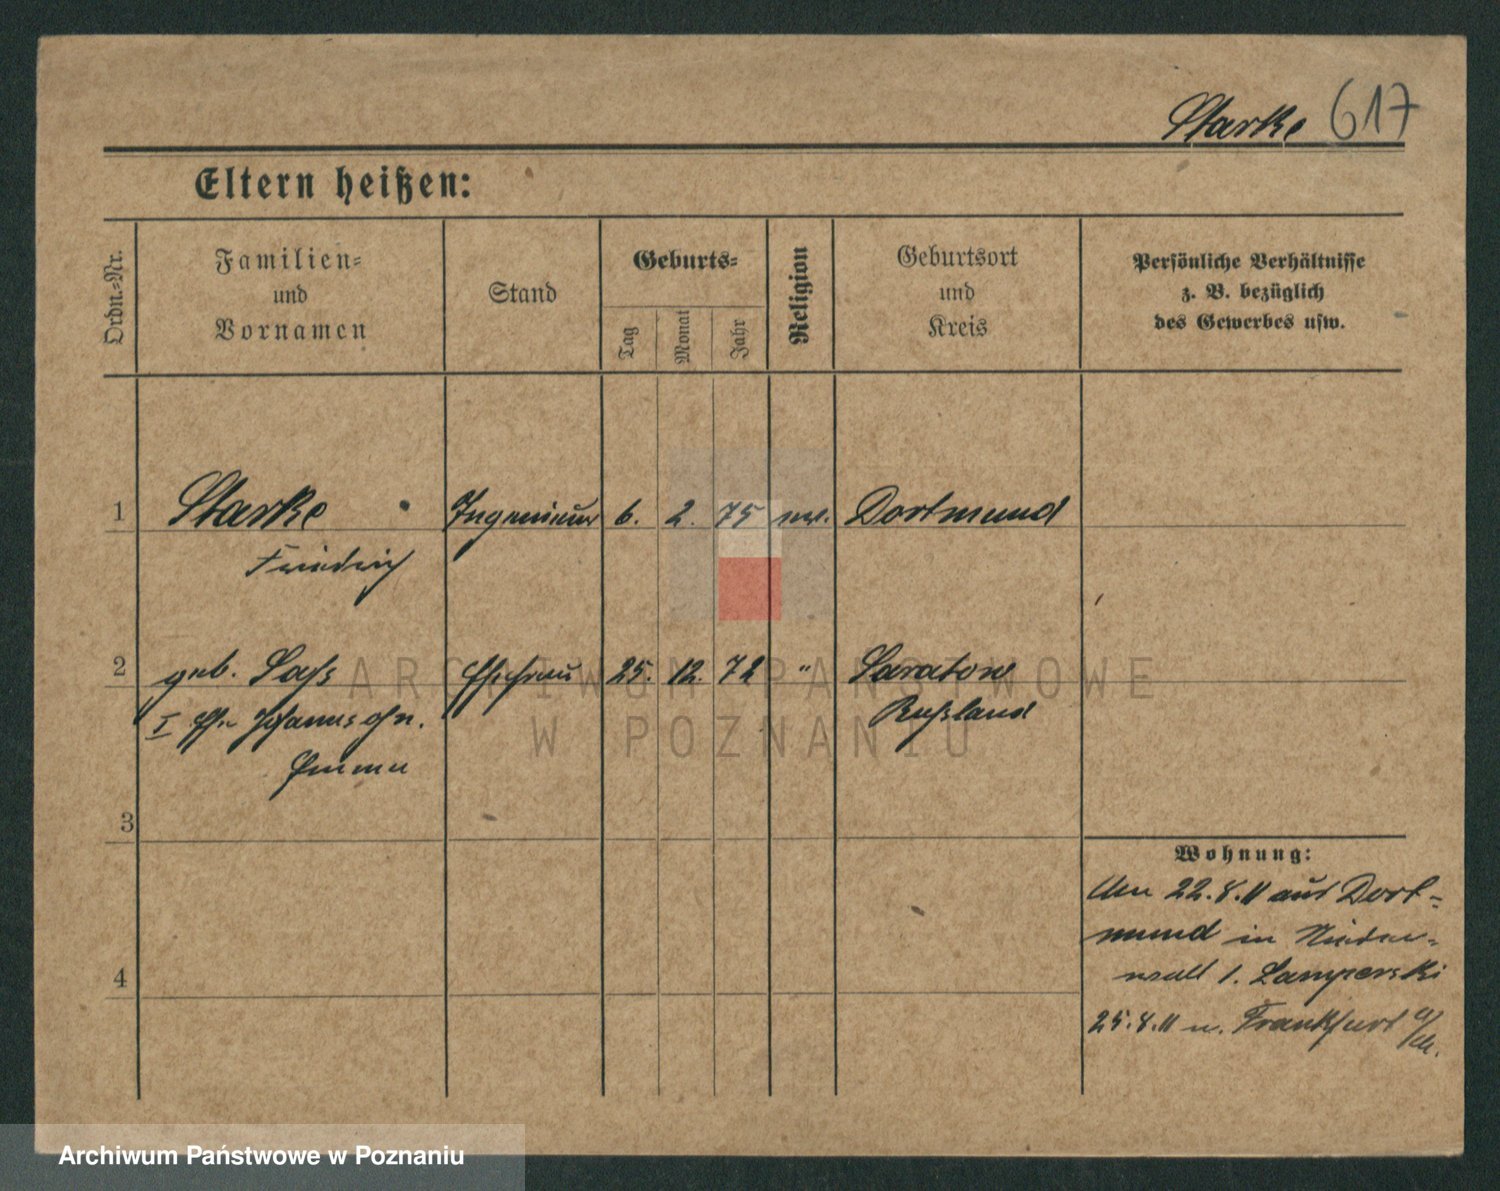 Starke 617
Eltern heißen:
Ordn.-Nr.
Familien-
und
Vornamen
Stand
Geburts-
Tag
Monat
Jahr
Religion
Geburtsort
und
Kreis
Persönliche Verhältnisse
z. B. bezüglich
des Gewerbes usw.
1 Starke Ingenieur 6. 2. 75 Dortmund
Friedrich
2 geb. Saß Ehefrau 25. 12. 72 " Saratow
I Ehe Johannsohn. Rußland
Emma
3
4
Wohnung:
22.8.11 aus Dort-
mund in Nieder-
wall 1. Lamperski
25.8.11 n. Frankfurt a/M.
ARCHIWUM PAŃSTWOWE
W POZNANIU
Archiwum Państwowe w Poznaniu